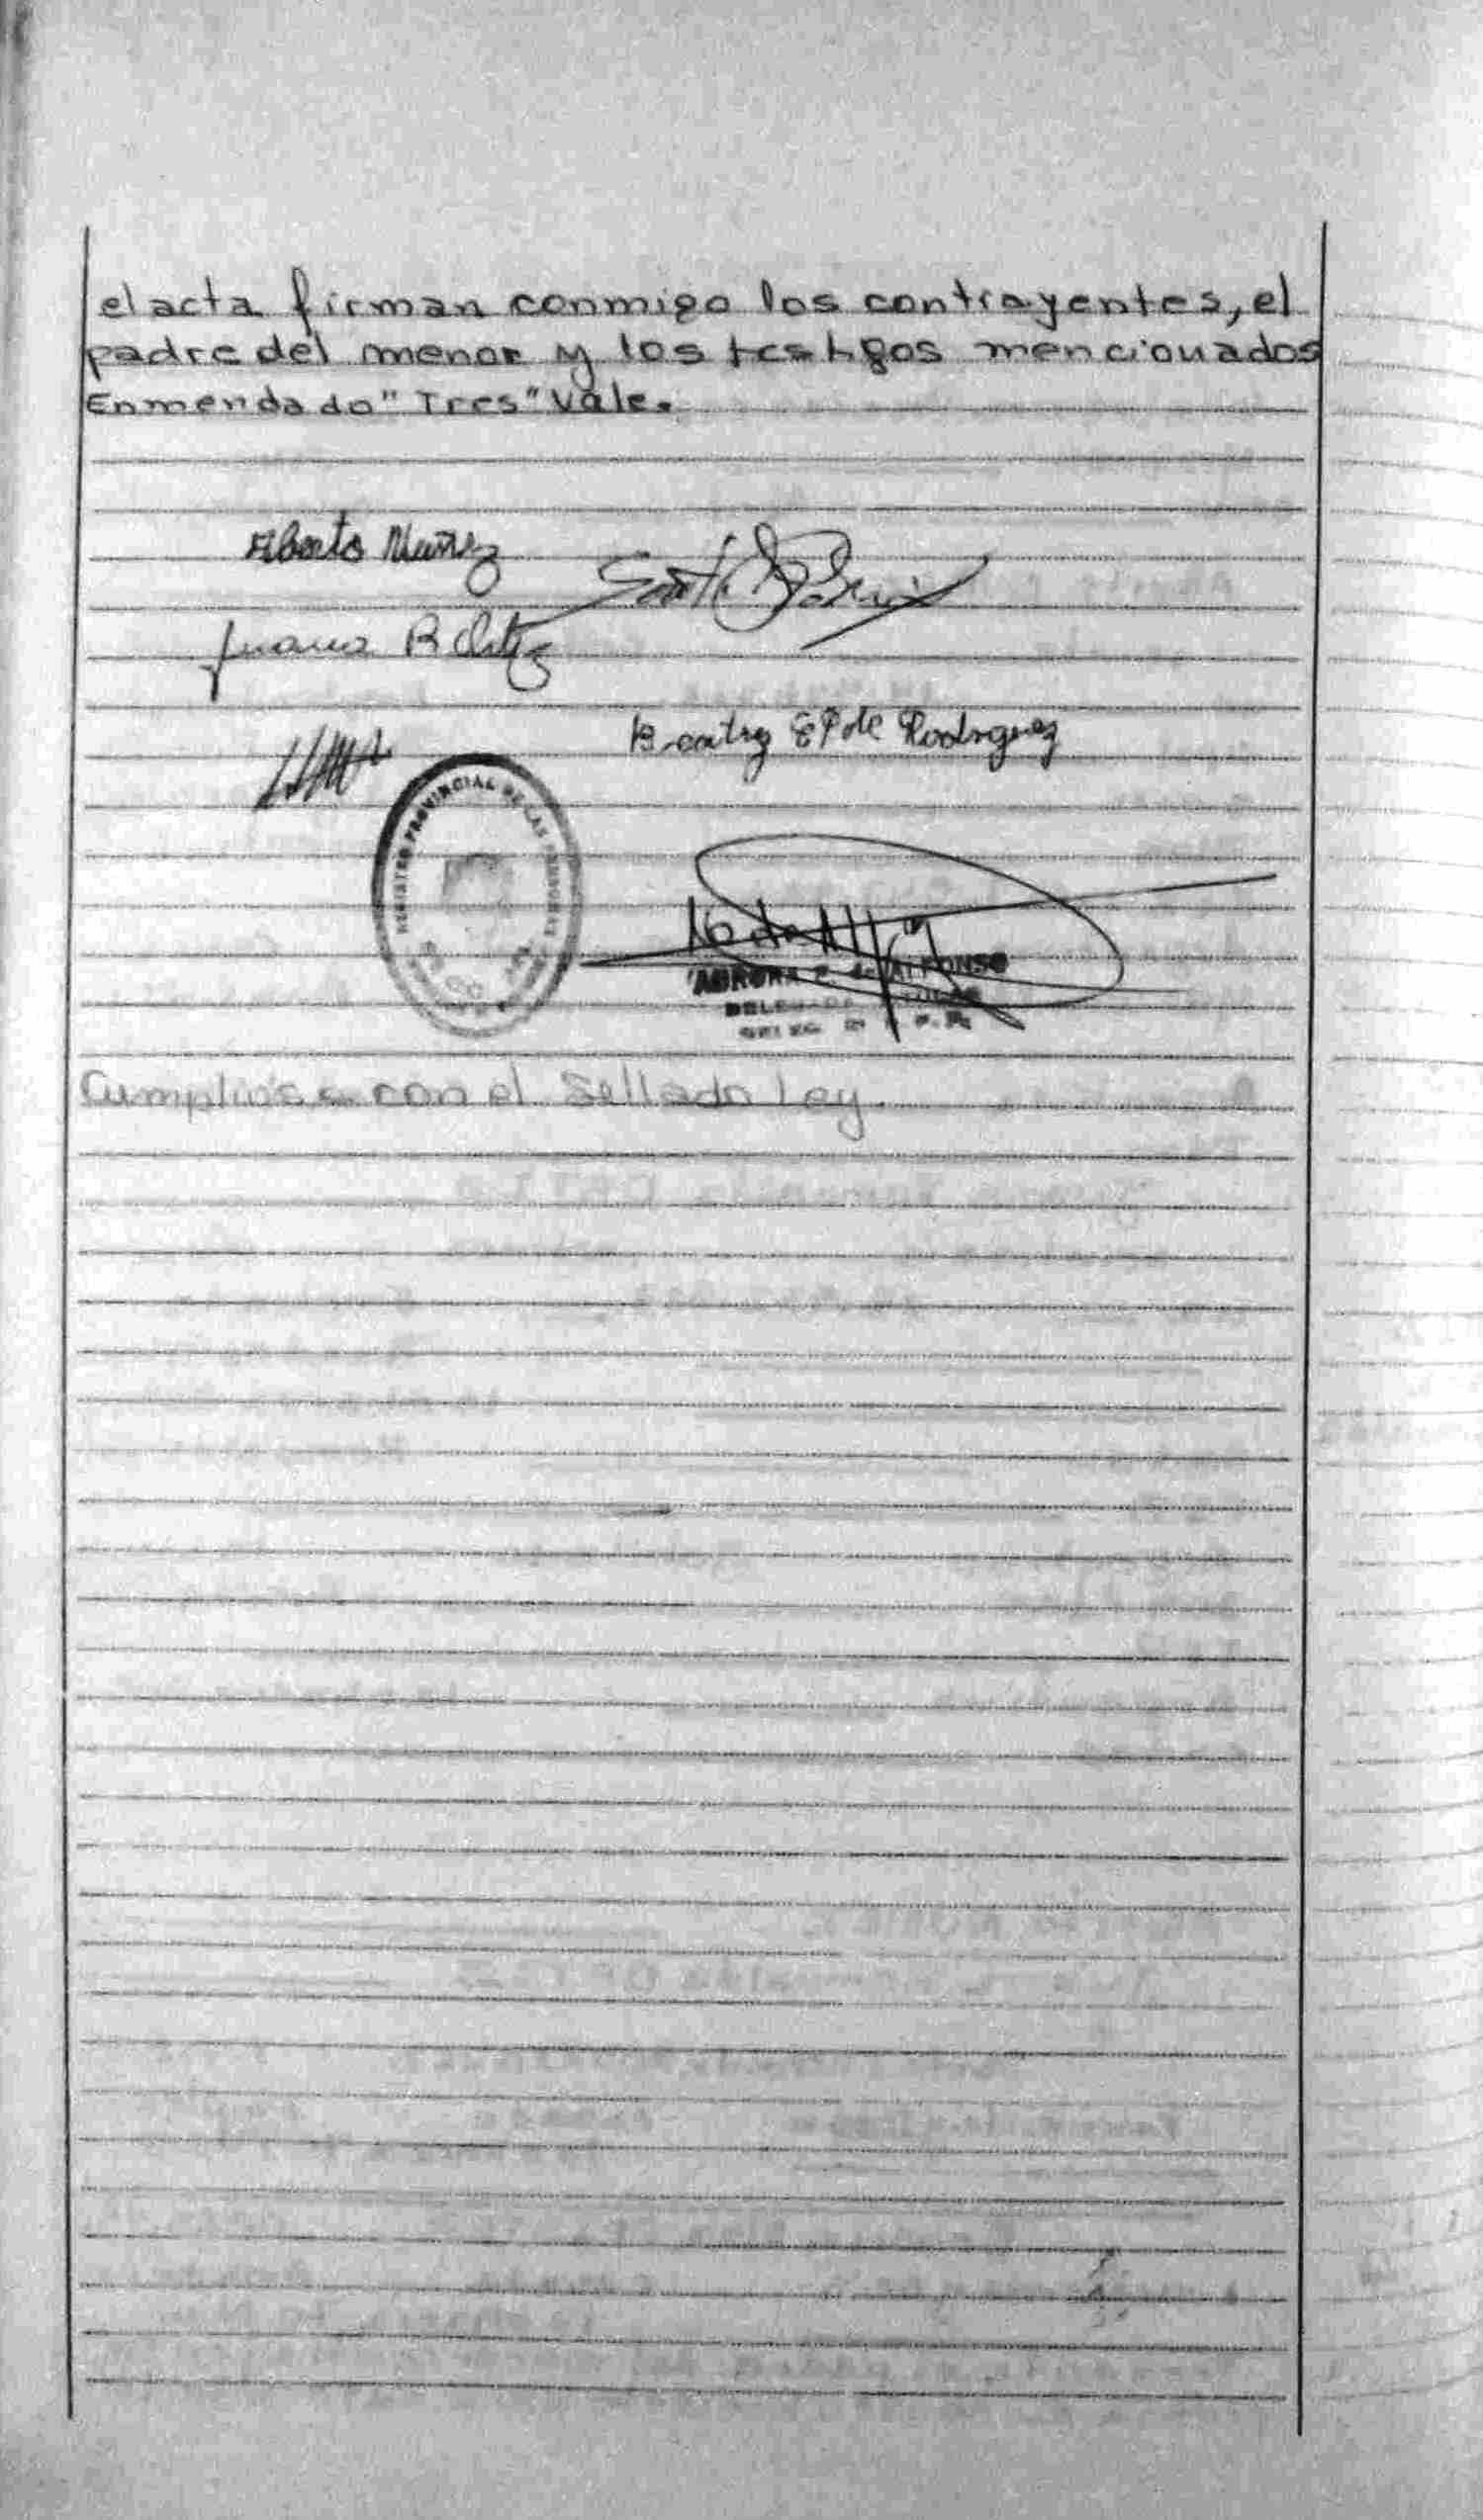 el acta firman conmigo los contrayentes, el
padre del menor y los testigos mencionados
Enmendado "Tres" Vale.
Alberto Nuñez
Juana R Ortiz
Beatriz E P de Rodriguez
REGISTRO PROVINCIAL DE LAS PERSONAS
AURORA de ALFONSO
Cumpliose con el Sellado Ley.